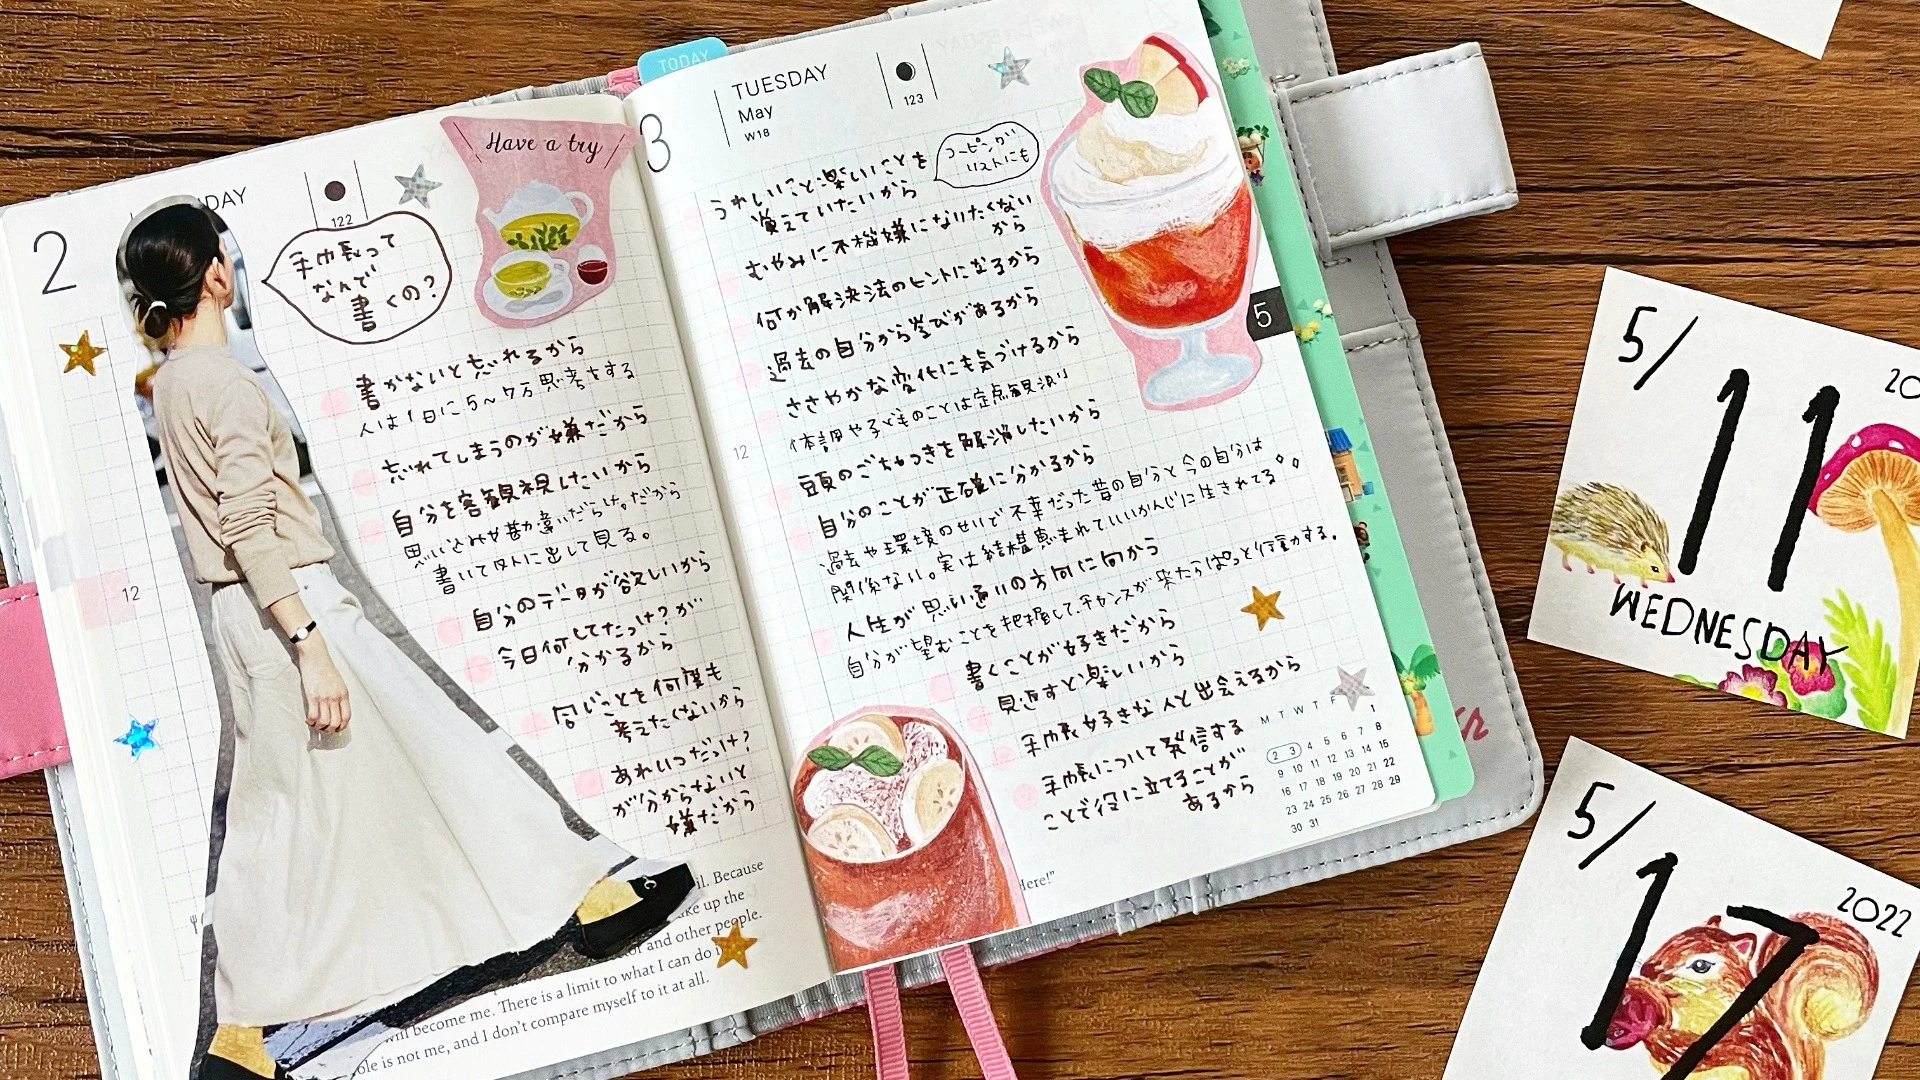 2
DAY
122
Have a try
手巾長って
なんで
書くの?
書かないと忘れるから
人は1日に5~7万思考をする
忘れてしまうのが嫌だから
自分を客観視したいから
思い込みや勘違いだらけ。だから
書いて外に出して見る。
自分のデータが欲しいから
今日何してたっけ?が
分かるから
同じことを何度も
考えたくないから
あれいつだっけ?
が分からないと
嫌だから
12
il. Because
ake up the
or and other people.
There is a limit to what I can do i
will become me.
ole is not me, and I don't compare myself to it at all.
TODAY
3
TUESDAY
May
W18
123
コーピング
リストにも
うれしいこと楽しいことを
覚えていたいから
むやみに不機嫌になりたくない
から
何か解決法のヒントになるから
過去の自分から学びがあるから
ささやかな変化にも気づけるから
体調や子どものことは定点観測
頭のごちゃつきを解消したいから
自分のことが正確に分かるから
過去や環境のせいで不幸だった昔の自分と今の自分は
関係ない。実は結構恵まれていいかんじに生きれてる
人生が思い通りの方向に向から
自分が望むことを把握して、チャンスが来たらぱっと行動する。
書くことが好きだから
見返すと楽しいから
手巾長好きな人と出会えるから
手巾長について発信する
ことで役に立てることが
あるから
12
5
M T W T F
1
2 3 4 5 6 7 8
9 10 11 12 13 14 15
16 17 18 19 20 21 22
23 24 25 26 27 28 29
30 31
Here!"
5/
11
20
WEDNESDAY
5/
17
2022